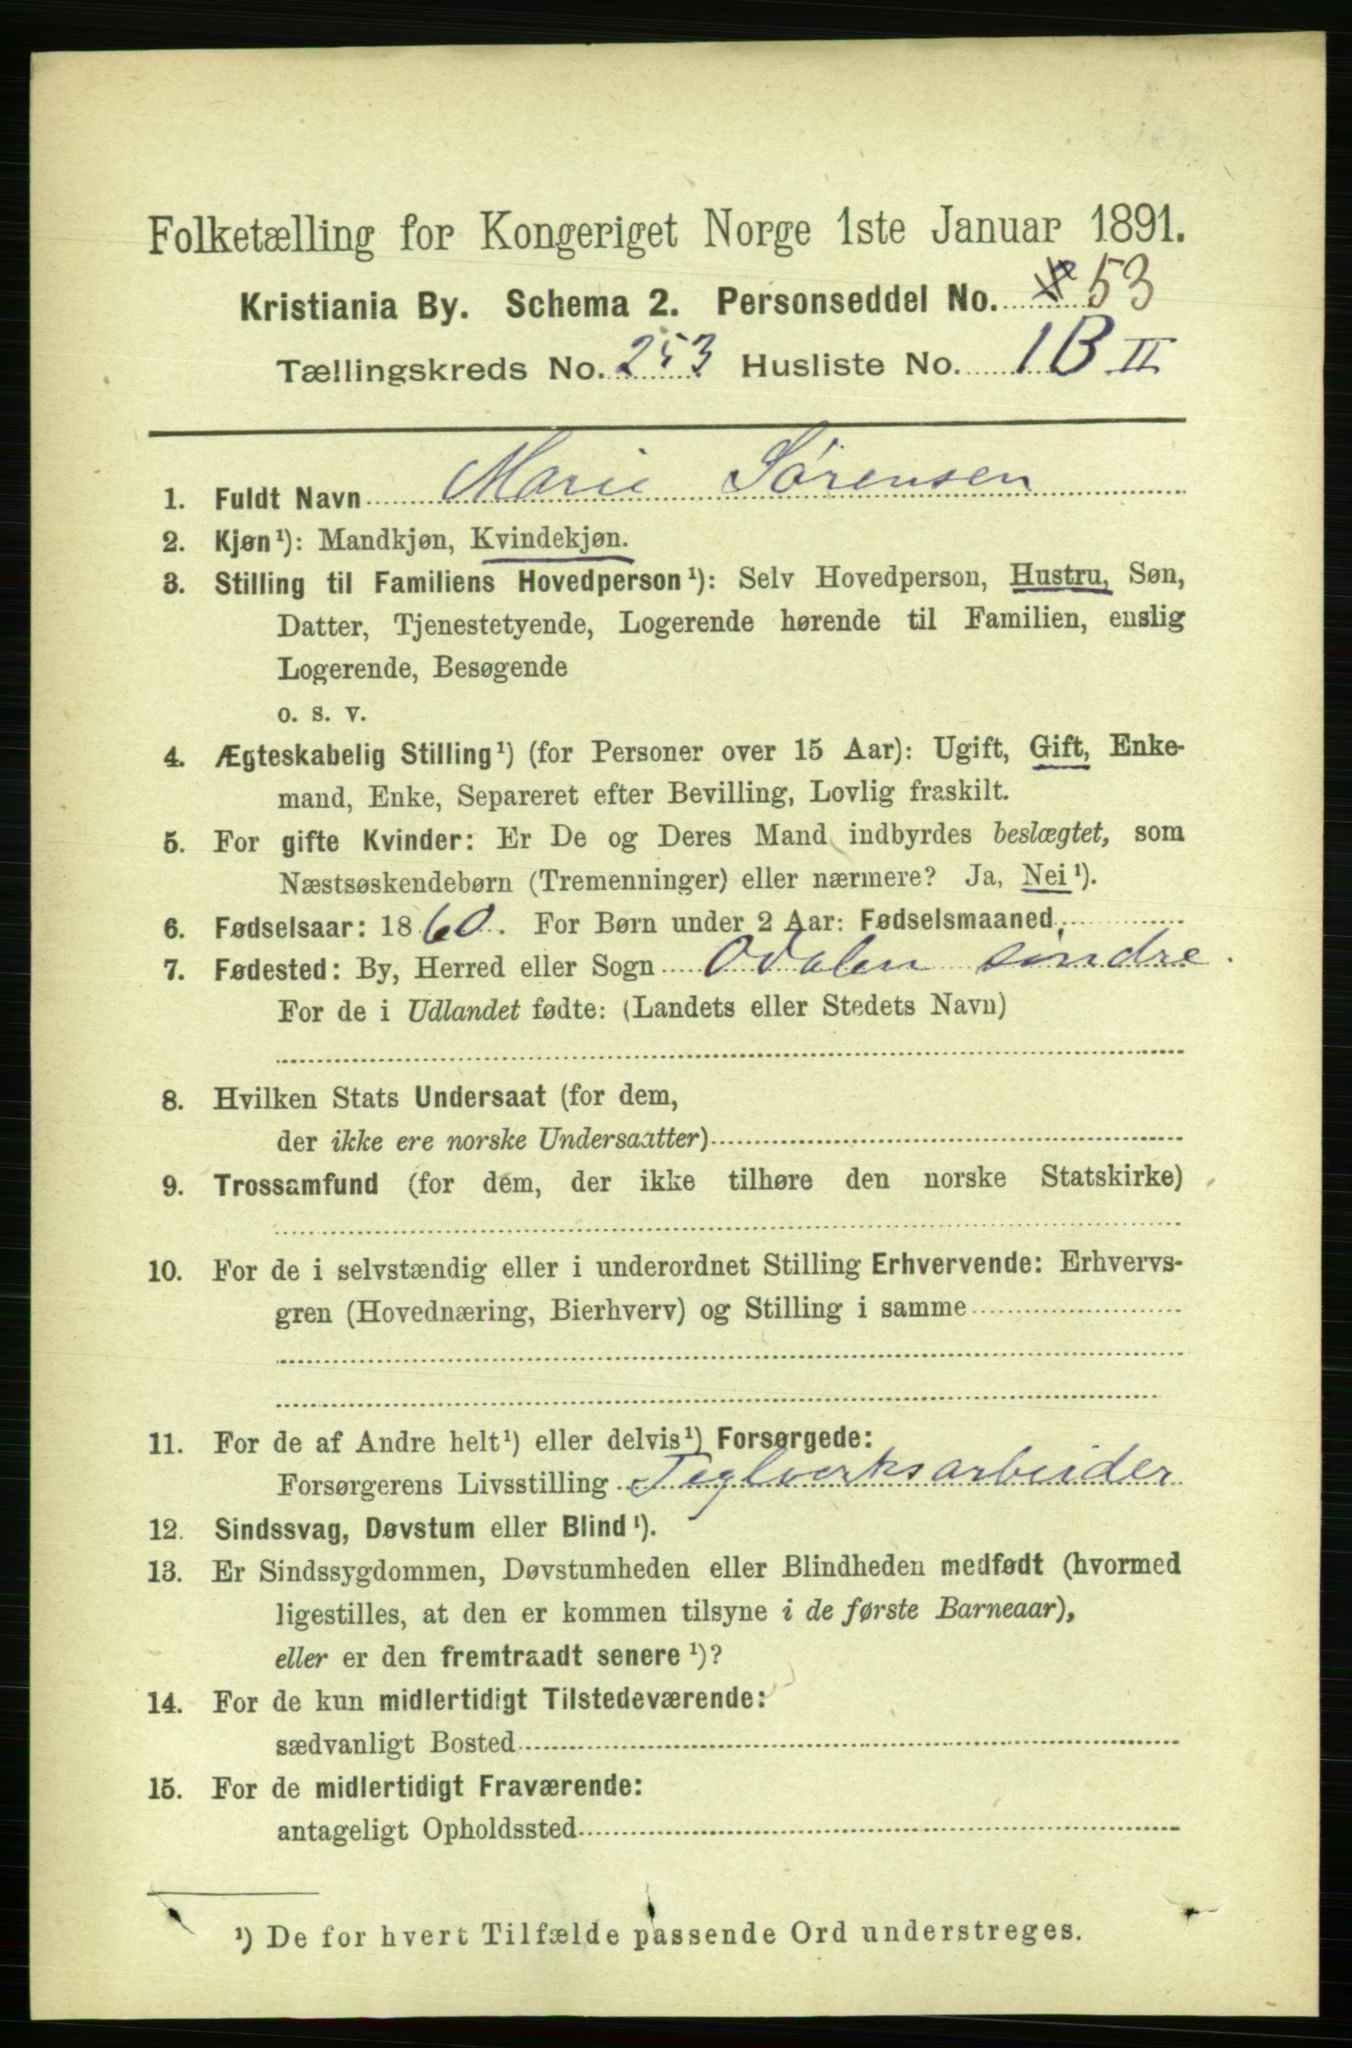 Folketælling for Kongeriget Norge 1ste Januar 1891.
Kristiania By. Schema 2. Personseddel No. 53
Tællingskreds No. 253 Husliste No. 1B II
1. Fuldt Navn Marie Sørensen
2. Kjøn¹): Mandkjøn, Kvindekjøn.
3. Stilling til Familiens Hovedperson¹): Selv Hovedperson, Hustru, Søn,
Datter, Tjenestetyende, Logerende hørende til Familien, enslig
Logerende, Besøgende
o. s. v.
4. Ægteskabelig Stilling¹) (for Personer over 15 Aar): Ugift, Gift, Enke-
mand, Enke, Separeret efter Bevilling, Lovlig fraskilt.
5. For gifte Kvinder: Er De og Deres Mand indbyrdes beslægtet, som
Næstsøskendebørn (Tremenninger) eller nærmere? Ja, Nei¹).
6. Fødselsaar: 1860. For Børn under 2 Aar: Fødselsmaaned
7. Fødested: By, Herred eller Sogn Odalen søndre.
For de i Udlandet fødte: (Landets eller Stedets Navn)
8. Hvilken Stats Undersaat (for dem,
der ikke ere norske Undersaatter)
9. Trossamfund (for dem, der ikke tilhøre den norske Statskirke)
10. For de i selvstændig eller i underordnet Stilling Erhvervende: Erhvervs-
gren (Hovednæring, Bierhverv) og Stilling i samme
11. For de af Andre helt¹) eller delvis¹) Forsørgede:
Forsørgerens Livsstilling Teglverksarbeider
12. Sindssvag, Døvstum eller Blind¹).
13. Er Sindssygdommen, Døvstumheden eller Blindheden medfødt (hvormed
ligestilles, at den er kommen tilsyne i de første Barneaar),
eller er den fremtraadt senere¹)?
14. For de kun midlertidigt Tilstedeværende:
sædvanligt Bosted
15. For de midlertidigt Fraværende:
antageligt Opholdssted
¹) De for hvert Tilfælde passende Ord understreges.